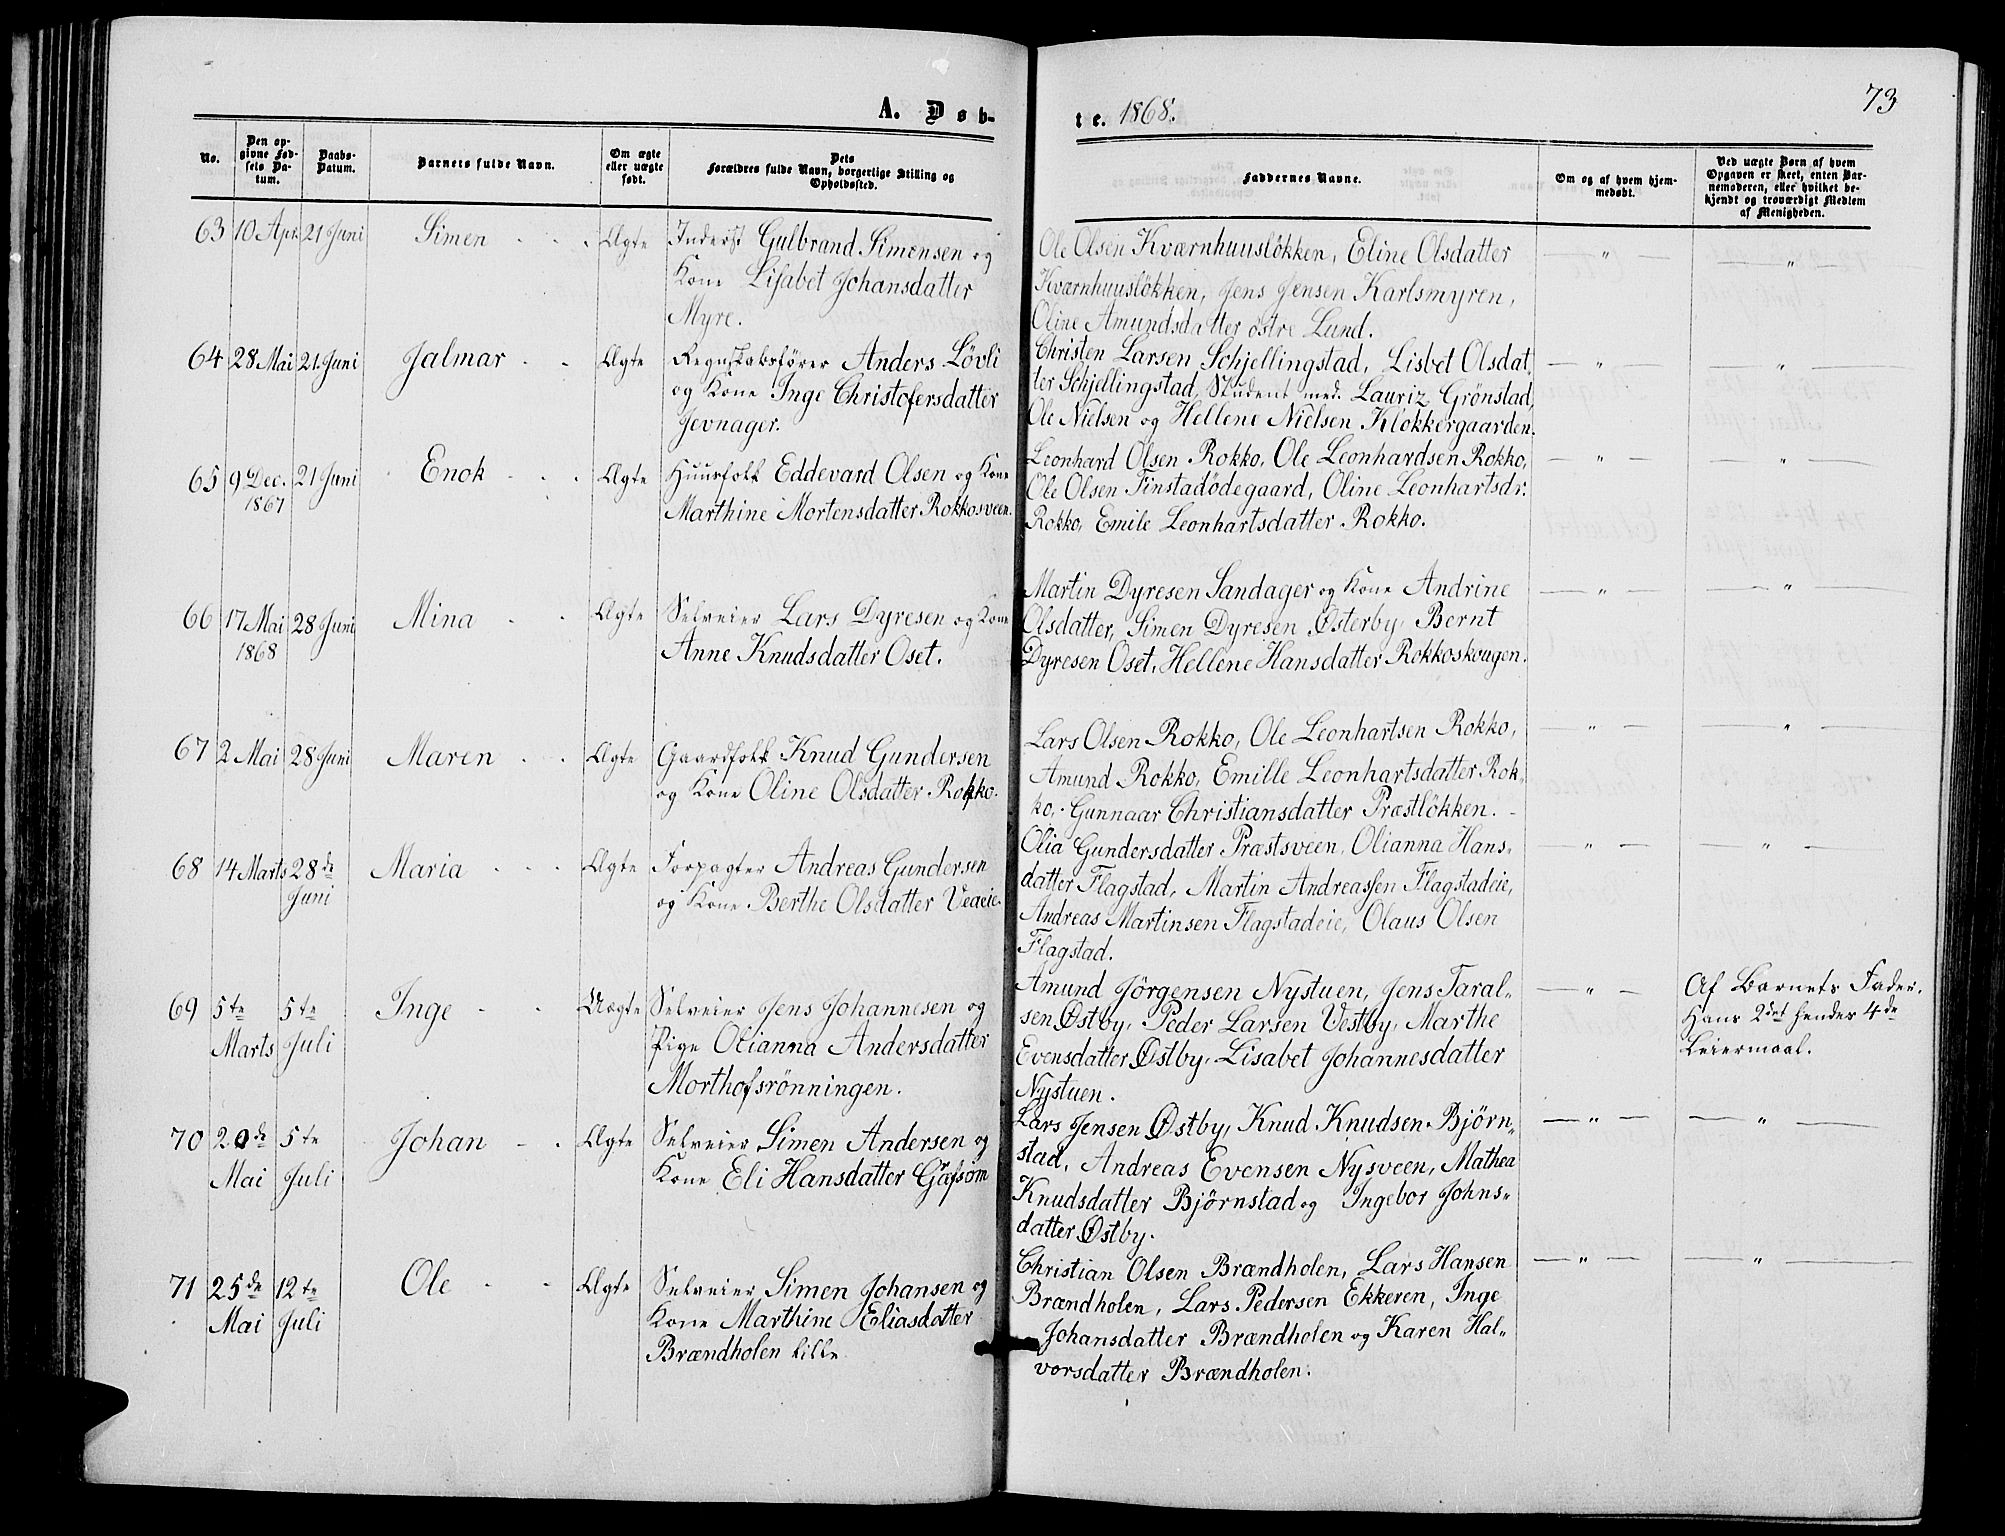 73
A. Døb-
te. 1868.
No.
Den op-
givne Fød-
sels Da-
tum.
Daabs-
Datum.
Barnets fulde Navn.
Om ægte
eller uægte
født.
Dets
Forældres fulde Navn, borgerlige Stilling og
Opholdssted.
Faddernes Navne.
Om og af hvem hjem-
medøbt.
Ved uægte Børn af hvem
Opgaven er skeet, enten Bar-
nemoderen, eller hvilket be-
kjendt og troværdigt Medlem
af Menigheden.
63 10 Apr. 21 Juni Simen - - - Ægte Inderst Gulbrand Simensen og
Kone Lisabet Johansdatter
Myre.
Ole Olsen Kværnhuusløkken, Eline Olsdatter — " — — " —
Kværnhuusløkken, Jens Jensen Karlsmyren,
Oline Amundsdatter østre Lund.
64 28 Mai 21 Juni Jalmar - - Ægte Regnskabsfører Anders Løvli
og Kone Inge Christofersdatter
Jevnager.
Christen Larsen Schjellingstad, Lisbet Olsdat, — " — — " —
ter Schjellingstad, Student med. Lauriz Grønstad,
Ole Nielsen og Hellene Nielsen Klokkergaarden.
65 9 Dec. 21 Juni Enok - - - Ægte Huusfolk Eddevard Olsen og Kone
1867 Marthine Mortensdatter Rokkosveen.
Leonhard Olsen Rokko, Ole Leonhardsen Rokko, — " — — " —
Ole Olsen Finstadødegaard, Oline Leonhartsdr.
Rokko, Emile Leonhartsdatter Rokko.
66 17 Mai 28 Juni Mina - - Ægte Selveier Lars Dyresen og Kone
1868 Anne Knudsdatter Oset.
Martin Dyresen Sandager og Kone Andrine — " — — " —
Olsdatter, Simen Dyresen Østerby, Bernt
Dyresen Oset, Hellene Hansdatter Rokkoskougen.
67 2 Mai 28 Juni Maren - - Ægte Gaardfolk Knud Gundersen
og Kone Oline Olsdatter Rokko.
Lars Olsen Rokko, Ole Leonhartsen Rokko, — " — — " —
Amund Rokko, Emille Leonhartsdatter Rok-
ko, Gunnaar Christiansdatter Præstløkken. -
68 14 Marts 28de Maria - - - Ægte Forpagter Andreas Gundersen
Juni og Kone Berthe Olsdatter Veaeie.
Olia Gundersdatter Præstsveen, Olianna Hans- — " — — " —
datter Flagstad, Martin Andreassen Flagstadeie,
Andreas Martinsen Flagstadeie, Olaus Olsen
Flagstad.
69 5te 5te Inge - - Uægte Selveier Jens Johannesen og
Marts Juli Pige Olianna Andersdatter
Morthofsrønningen.
Amund Jörgensen Nystuen, Jens Taral- — " — Af Barnets Fader.
sen Østby, Peder Larsen Vestby, Marthe Hans 2det hendes 4de
Evensdatter Østby, Lisabet Johannesdatter Leiermaal.
Nystuen.
70 20de 5te Johan - - Ægte Selveier Simen Andersen og
Mai Juli Kone Eli Hansdatter Gjæfsom
Lars Jensen Østby, Knud Knudsen Bjørn- — " — — " —
stad, Andreas Evensen Nysveen, Mathea
Knudsdatter Bjørnstad og Ingebor Johns-
datter Østby.
71 25de 12te Ole - - Ægte Selveier Simen Johansen og
Mai Juli Kone Marthine Eliasdatter
Brændholen lille
Christian Olsen Brændholen, Lars Hansen — " — — " —
Brændholen, Lars Pedersen Ekkeren, Inge
Johansdatter Brændholen og Karen Hal-
vorsdatter Brændholen.